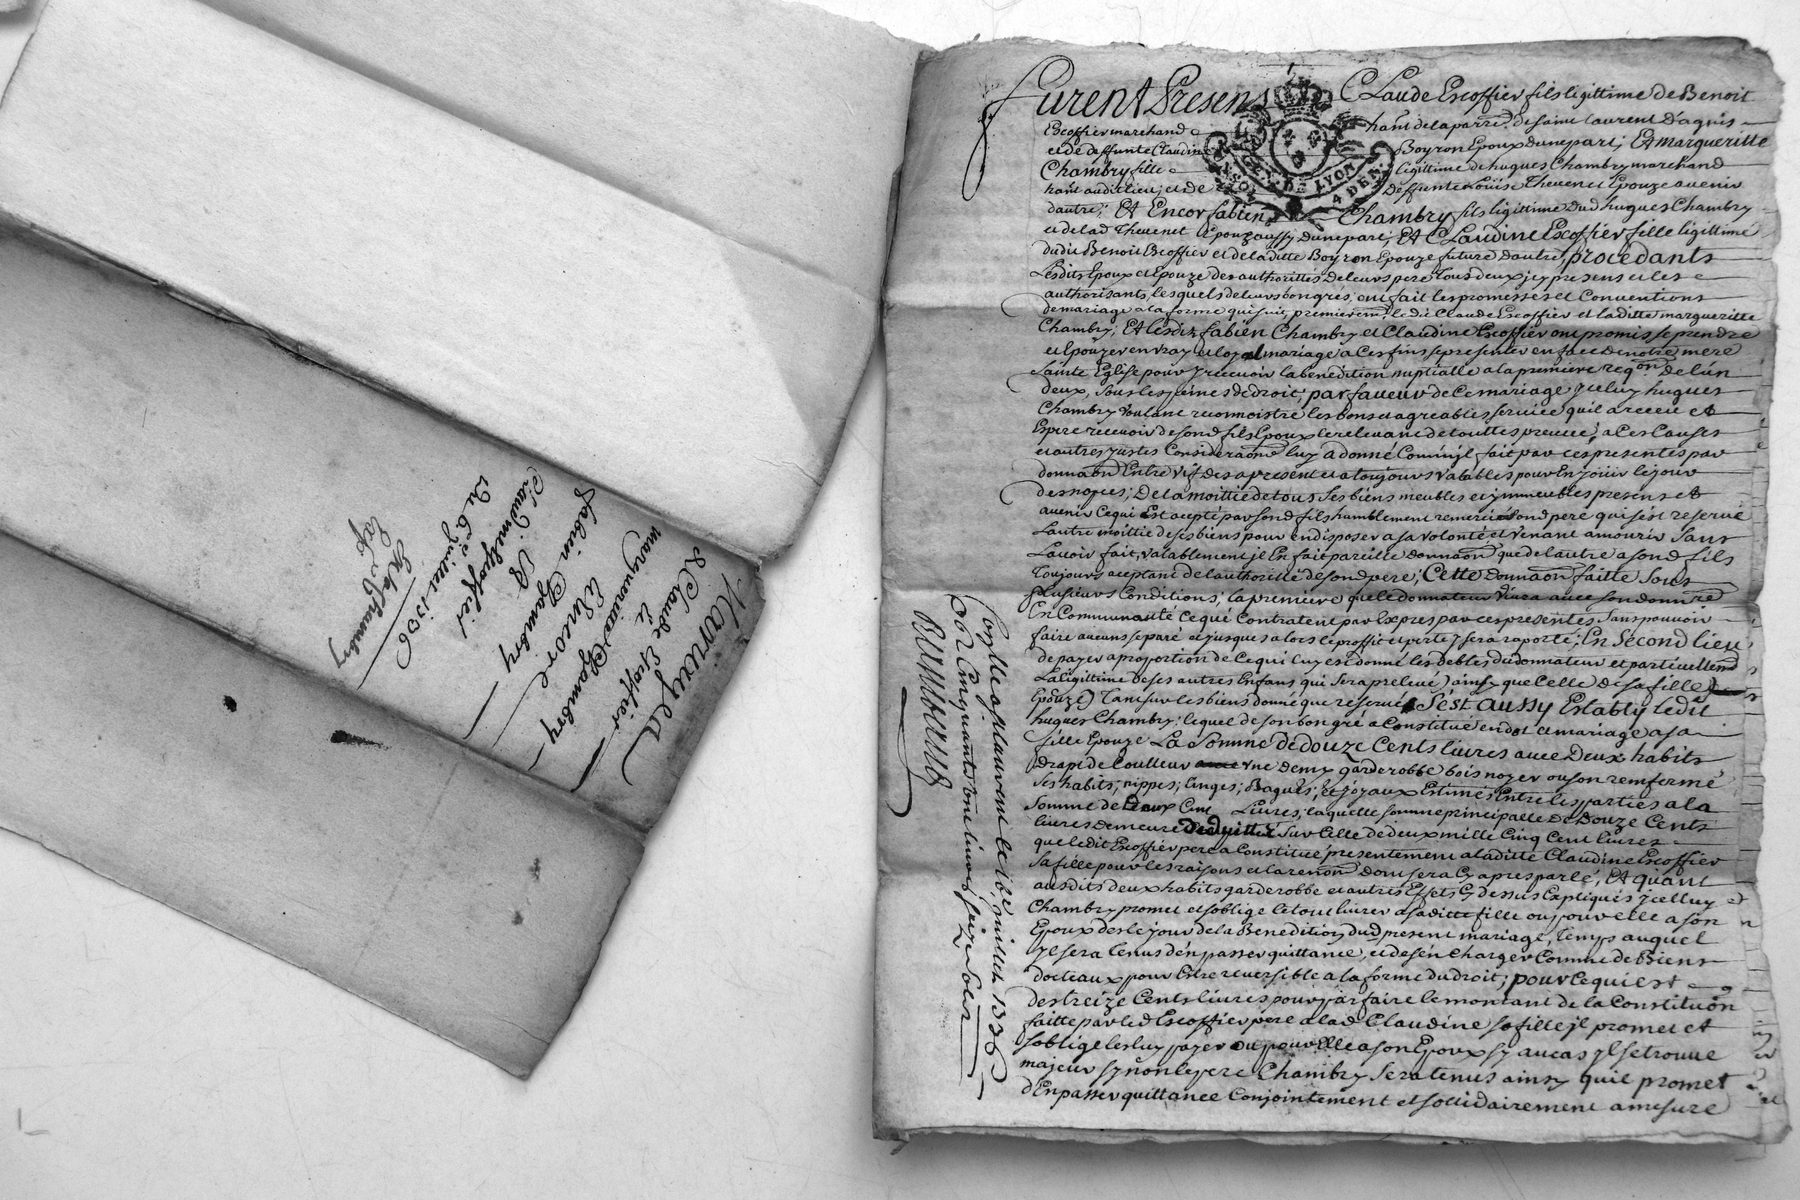 Mariage
de Claude Escoffier
et
marguerite Chambry
Encore
fabien Chambry
et
Claudine Escoffier
Du 6e Juillet 1736
Exp. Chambry
Furent Presens Claude Escoffier fils ligittime de Benoit
Escoffier marchand hant. de la parre. de saint Laurent Dagnis
et de deffunte Claudine Boyron Epoux dune part; Et margueritte
Chambry fille legittime de hugues Chambry marchand
hant audit lieu; et de Deffunte Louise Thevenet Epouze avenir
dautre; Et Encor fabien Chambry fils ligittime Dud hugues Chambry
GEN. DE LYON
4 DEN.
et de lad Thevenet Epoux aussy dune part; Et Claudine Escoffier fille ligittime
dudit Benoit Escoffier et de laditte Boyron Epouze future dautre, procedants
Lesdits Epoux et Epouze des authorittés de leurs pere Tous deux jcy presens et les
authorisants, lesquels de leurs bon grés ont fait les promesses et Conventions
de mariage a la forme qui suit, premierement ledit Claude Escoffier et laditte margueritte
Chambry; Et lesdits fabien Chambry et Claudine Escoffier ont promis se prendre
et Epouzer en vray et loyal mariage a Ces fins se presenter en face de notre mere
Sainte Eglise pour y recevoir la benedition nuptialle a la premiere reqon de lun
deux, sous les peines de droit; par faveur de Ce mariage jceluy hugues
Chambry voulant reconnoistre les bons et agreables service quil a receu et
Espere recevoir de sond fils Epoux le relevant de touttes preuve, a Ces Causes
et autres justes Consideraons luy a donné Comme jl fait par ces presentes par
donnaon Entre vif des a present et a toujours valables pour En jouir le jour
des nopces; De la moitie de tous ses biens meubles et jmmeubles presens et
avenir Ce qui Est acepté par sond fils humblement remercié sond pere qui sést reservé
Lautre moittie de ses biens pour en disposer a sa volonté et venant a mourir sans
Lavoir fait, valablement jl En fait pareille donnaon que de lautre a sond fils
Toujours aceptant de lauthoritté de sond pere; Cette donnaon faitte sous
plusieurs Conditions; la premiere que le donnateur vivra avec son donnre
En Communauté Ce qué Contratent par Expres par ces presentes, sans pouvoir
faire aucuns separé et jusques a lors le proffit et perte y sera raporté; En Second lieu
de payer a proportion de Ce qui luy est donné les debtes du donnateur et particullemt
La ligittime de ses autres Enfans qui sera prelevé) ainsy que Celle de sa fille
Epouze) Tant sur les biens donné que reservé, S'est aussy Estably ledit
hugues Chambry; lequel de son bon gré a Constitué en dot et mariage a sa
fille Epouze La Somme de douze Cents livres avec Deux habits
drapt de Coulleur une demy garderobbe bois noyer ou son renfermé
ses habits, nippes, linges, Bagues, et joyaux Estimés Entre les parties a la
somme de deux Cent Livres, laquelle somme principalle de Douze Cents
livres demeure dedduitte sur Celle de deux mille Cinq Cent livres
que ledit Escoffier pere a Constitué presentement a laditte Claudine Escoffier
sa fille pour les raisons et la renon dont sera Cy apres parlé, Et quant
ausdits deux habits garderobbe et autres Effets Cy dessus Expliqués jcelluy
Chambry promet et soblige le tout livrer a saditte fille ou pour elle a son
Epoux des le jour de la Benedition dud present mariage, temps auquel
jl sera tenus dén passer quittance, et de sén Charger Comme de Biens
doctaux pour Estre reversible a la forme du droit; pour Ce qui est
des treize Cents livres pour parfaire le montant de la Constituõn
faitte par led Escoffier pere a lad Claudine sa fille jl promet et
soblige les luy payer ou pour elle a son Epoux sy au cas jl se trouve
majeur sy non le pere Chambry sera tenus ainsy quil promet
d'En passer quittance Conjointement et sollidairement a mesure
Conlle a st laurent le 16e juillet 1736
Cinquante une livres seize sols